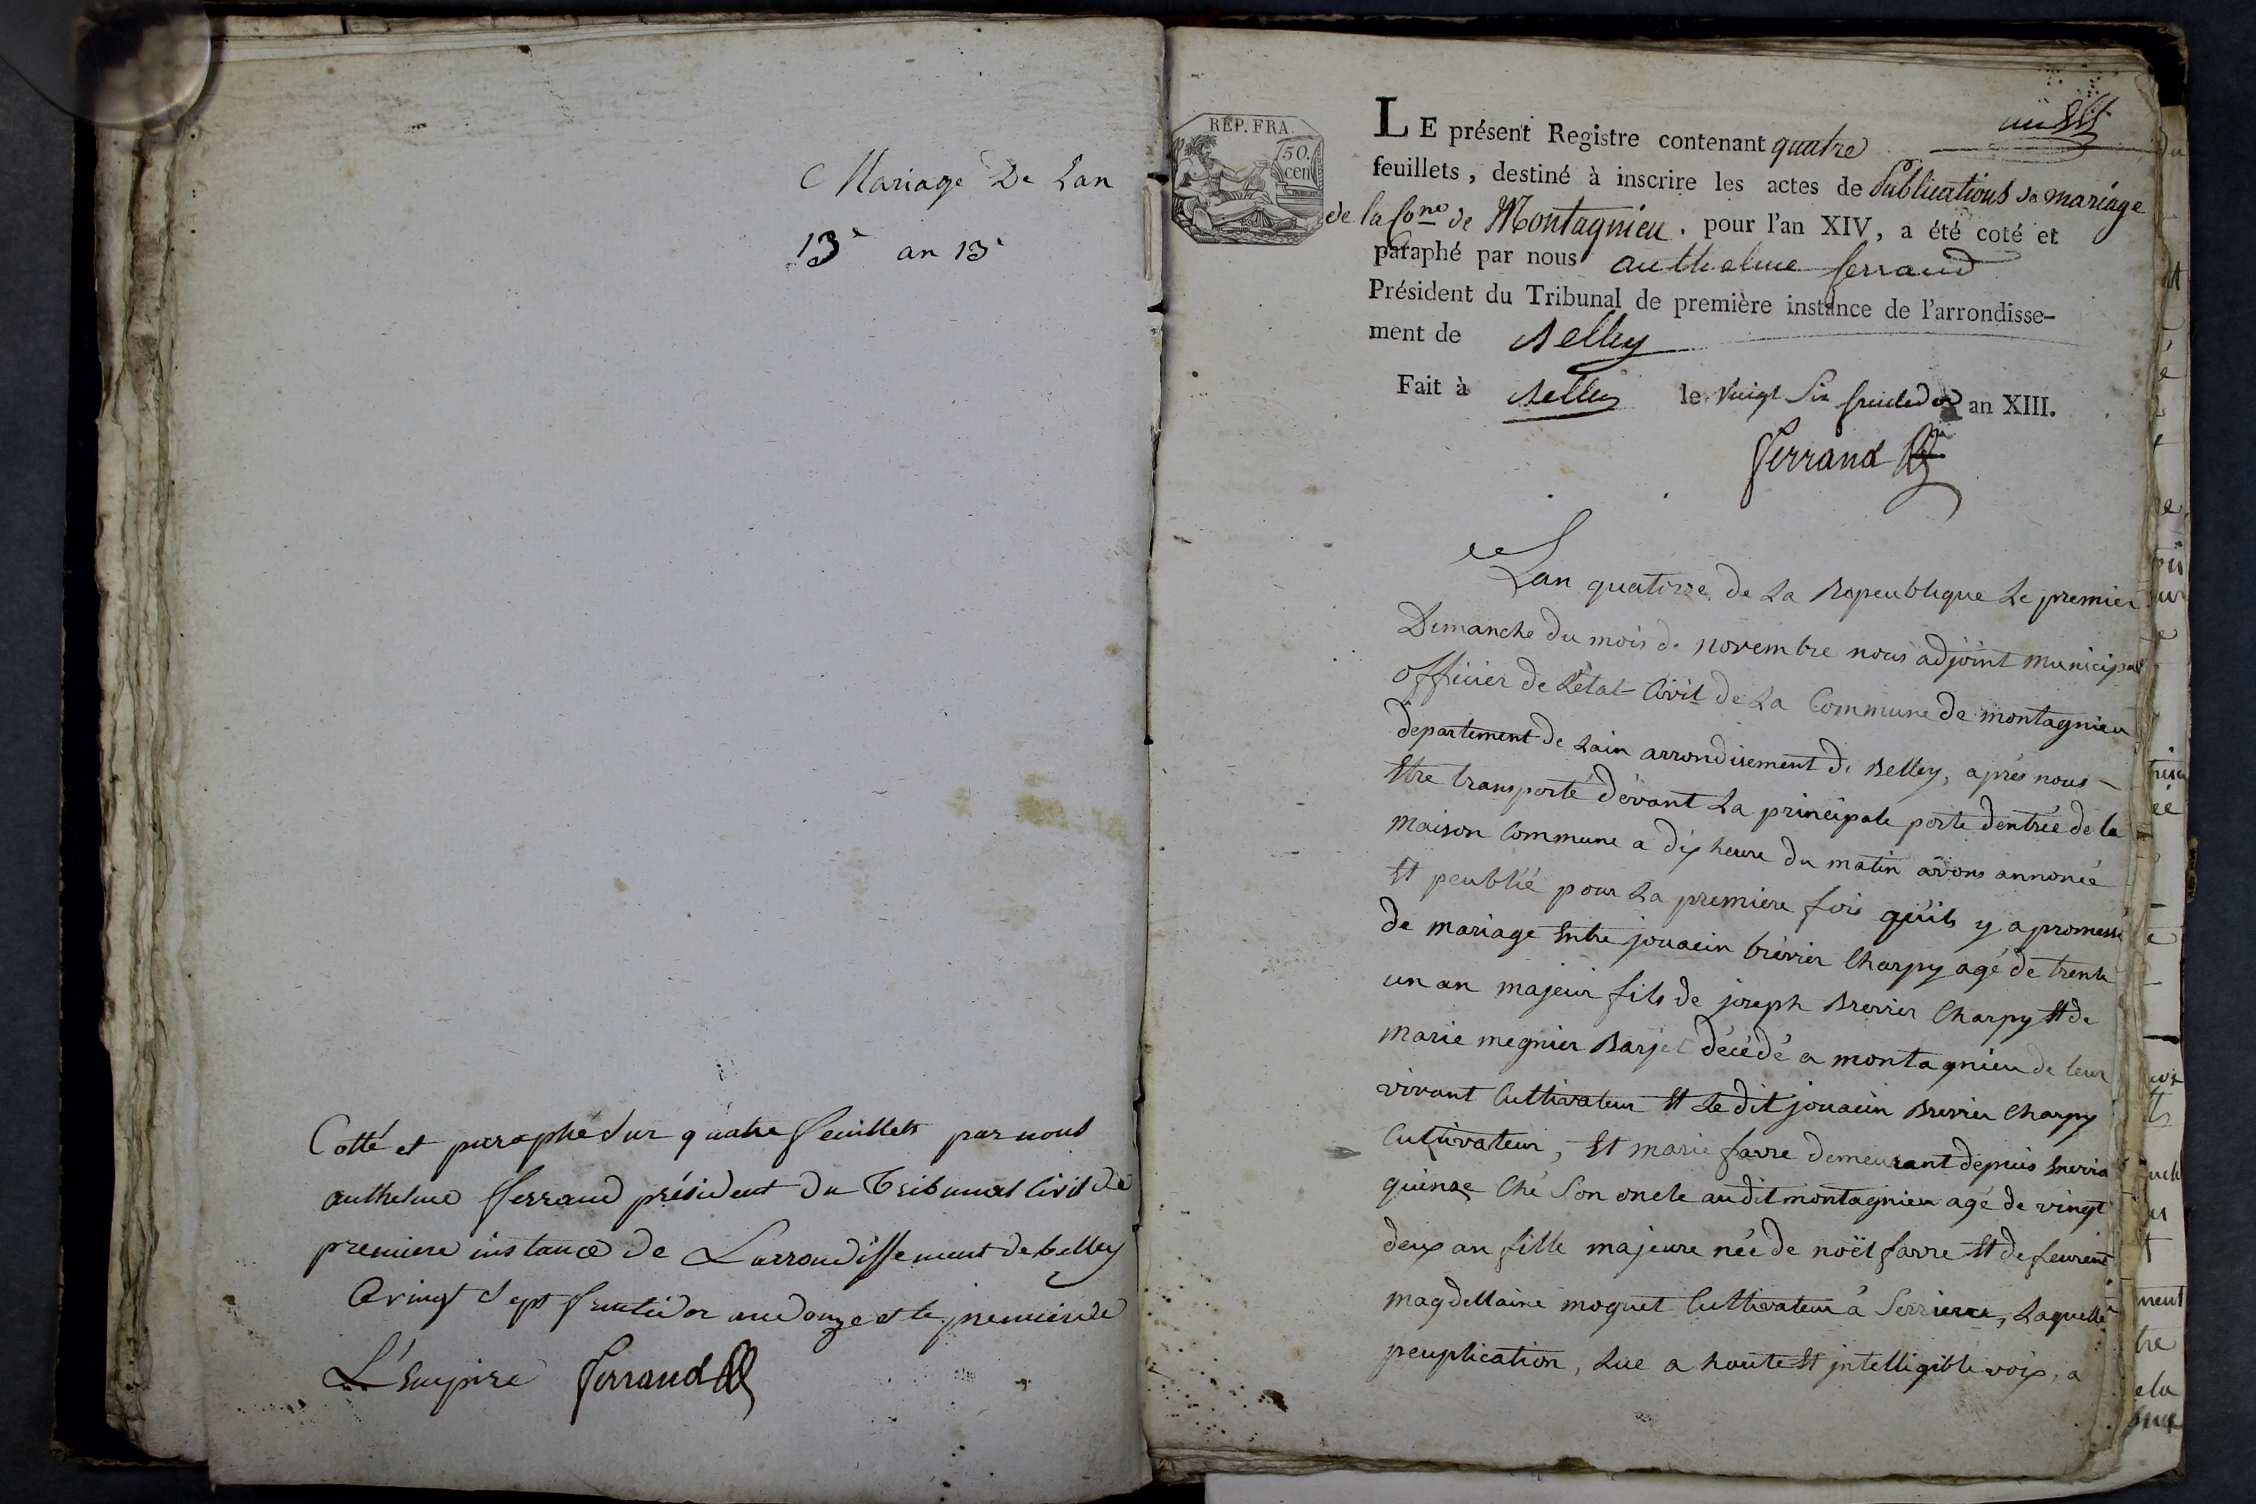 Mariage De Lan
13e an 13e
Cotté et paraphé Sur quatre feuillets par nous
anthelme ferrand président du Tribunal Civil de
premiere instance de Larrondissement de belley
Ce vingt Sept fructidor an douze et le premier de
L'Empire ferrand
REP. FRA.
50.
cen
LE présent Registre contenant quatre
feuillets, destiné à inscrire les actes de Publications de mariage
de la Cone de Montagnieu. pour l'an XIV, a été coté et
paraphé par nous anthelme ferrand
Président du Tribunal de première instance de l'arrondisse-
ment de Belley
Fait à Belley le Vingt Six fructidor an XIII.
ferrand
Lan quatorze de La Repeublique Le premier
Dimanche du mois de novembre nous adjoint municipal
officier de Létat Civil de La Commune de montagnieu
departement de Lain arrondisement de Belley, aprés nous
Etre transporté dévant La principale porte dentrée de la
maison Commune a dix heure du matin avons annoncé
Et peublié pour La premiere fois qu'ils y a promesse
de mariage Entre jouacin brévier Charpy agé de trente
un an majeur fils de joseph Brevier Charpy Et de
marie megnier Barjet décédé a montagnieu de leur
vivant Cultivateur Et Le dit jouacin Brevier Charpy
Cultivateur, Et marie favre demeurant depuis
quinze Ché Son oncle au dit montagnieu agé de vingt
deux an fille majeure née de noël favre Et de
magdellaine moquet Cultivateur á Serrieres, Laquelle
peuplication, Lue a haute Et jntelligible voix, a